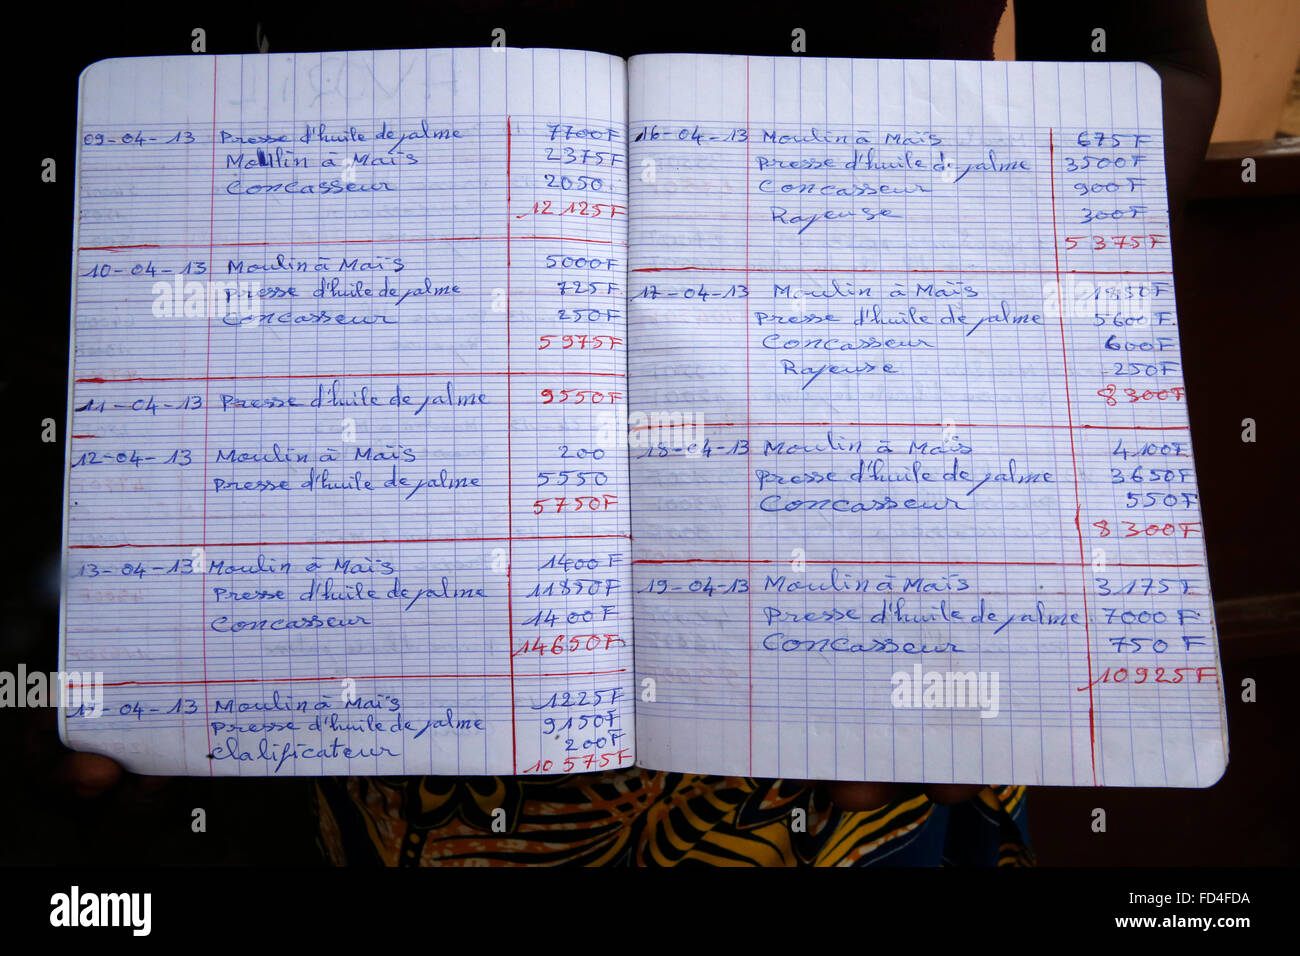 AVRIL
09-04-13 Presse d'huile de palme 7700F
Moulin à Maïs 2375F
Concasseur 2050
12125F
10-04-13 Moulin à Maïs 5000F
Presse d'huile de palme 725F
Concasseur 250F
5975F
11-04-13 Presse d'huile de palme 9550F
12-04-13 Moulin à Maïs 200
Presse d'huile de palme 5550
5750F
13-04-13 Moulin à Maïs 1400F
Presse d'huile de palme 11850F
Concasseur 1400F
14650F
-04-13 Moulin à Maïs 1225F
Presse d'huile de palme 9150F
Clalificateur 200F
10575F
16-04-13 Moulin à Maïs 675F
Presse d'huile de palme 3500F
Concasseur 900F
Rapeuse 300F
5375F
17-04-13 Moulin à Maïs 1850F
Presse d'huile de palme 5600F
Concasseur 600F
Rapeuse 250F
8300F
18-04-13 Moulin à Maïs 4100F
Presse d'huile de palme 3650F
Concasseur 550F
8300F
19-04-13 Moulin à Maïs 3175F
Presse d'huile de palme 7000F
Concasseur 750F
10925F
alamy stock photo
alamy
Image ID: FD4FDA
www.alamy.com